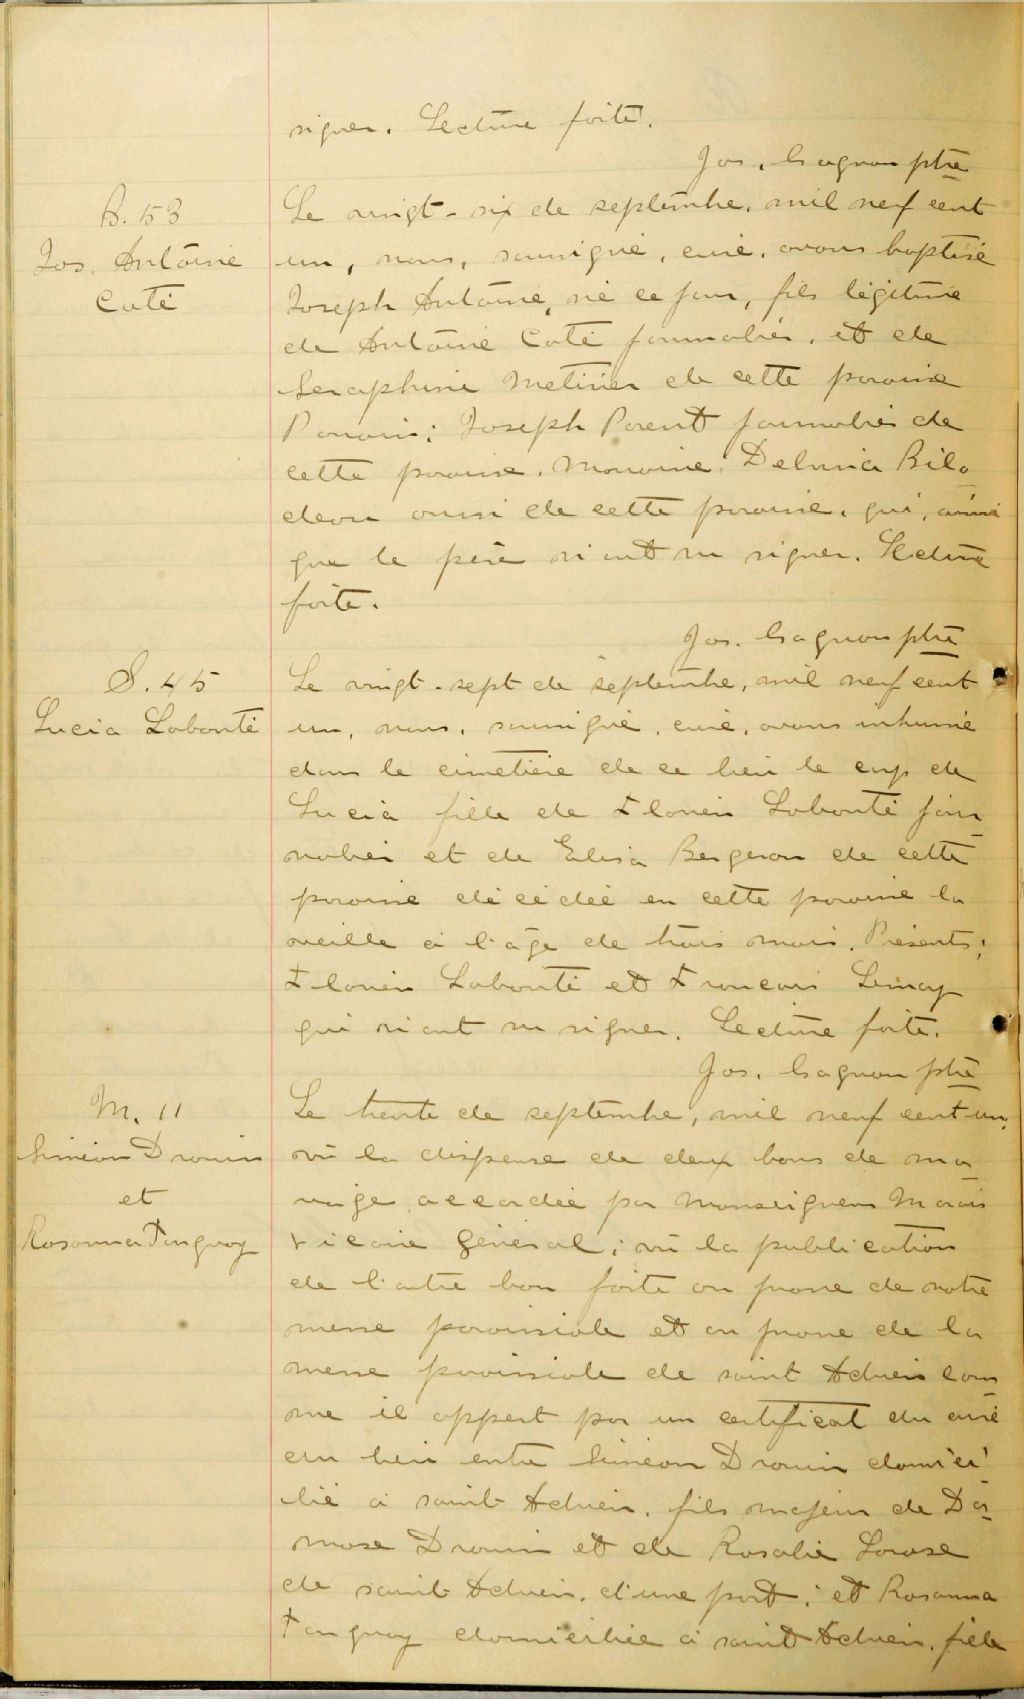 signer. Lecture faite.
Jos. Gagnon ptre
B. 53
Jos. Antoine
Coté
Le vingt-six de septembre, mil neuf cent
un, nous, soussigné, curé, avons baptisé
Joseph Antoine, né ce jour, fils légitime
de Antoine Coté journalier, et de
Seraphine Metivier de cette paroisse
Parrain; Joseph Parent journalier de
cette paroisse. Marraine, Delvina Bilo
deau aussi de cette paroisse, qui, ainsi
que le père n'ont su signer. Lecture
faite.
Jos. Gagnon ptre
S. 45
Lucia Labonté
Le vingt-sept de septembre, mil neuf cent
un, nous, soussigné, curé, avons inhumé
dans le cimetière de ce lieu le corps de
Lucia fille de Flavien Labonté jour
nalier et de Elisa Bergeron de cette
paroisse décédée en cette paroisse la
veille à l'âge de trois mois. Présents;
Flavien Labonté et Francois Lemay
qui n'ont su signer. Lecture faite.
Jos. Gagnon ptre
M. 11
Siméon Drouin
et
Rosanna Tanguay
Le trente de septembre, mil neuf cent un,
vu la dispense de deux bans de ma
riage accordée par Monseigneur Marois
Vicaire Général; vu la publication
de l'autre ban faite au prone de notre
messe paroissiale et au prone de la
messe paroissiale de saint Adrien com
me il appert par un certificat du curé
du lieu entre Siméon Drouin domici
lié à saint Adrien, fils majeur de Da
mase Drouin et de Rosalie
de saint Adrien, d'une part; et Rosanna
Tanguay domiciliée à saint Adrien, fille